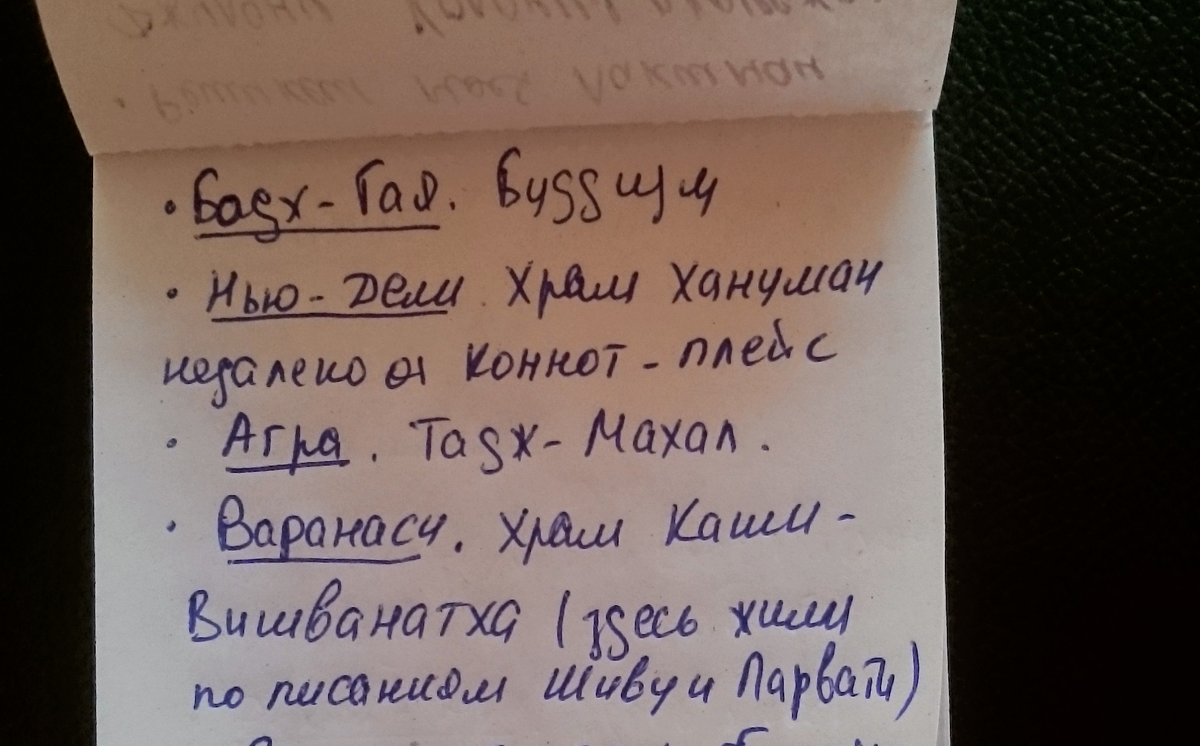 · Бадх-Гая. Буддизм
· Нью-Дели. Храм Хануман
недалеко от Коннот-плейс
· Агра. Тадж-Махал.
· Варанаси. Храм Каши-
Вишванатха (здесь жили
по писаниям Шиву и Парвати)